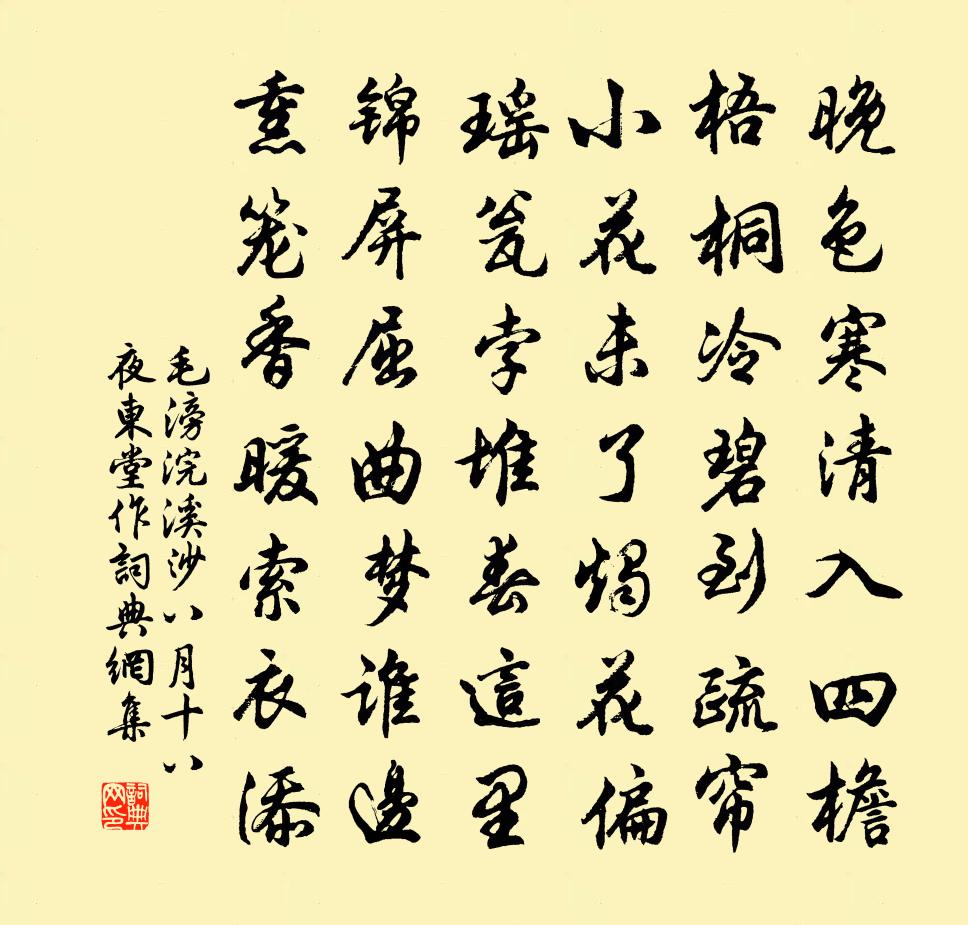 晚色寒清入四檐
梧桐冷碧到疏帘
小花未了烛花偏
瑶瓮孛堆春這里
锦屏屈曲梦谁邊
熏笼香暖索衣添
毛滂浣溪沙八月十八
夜東堂作詞典網集
詞典网印